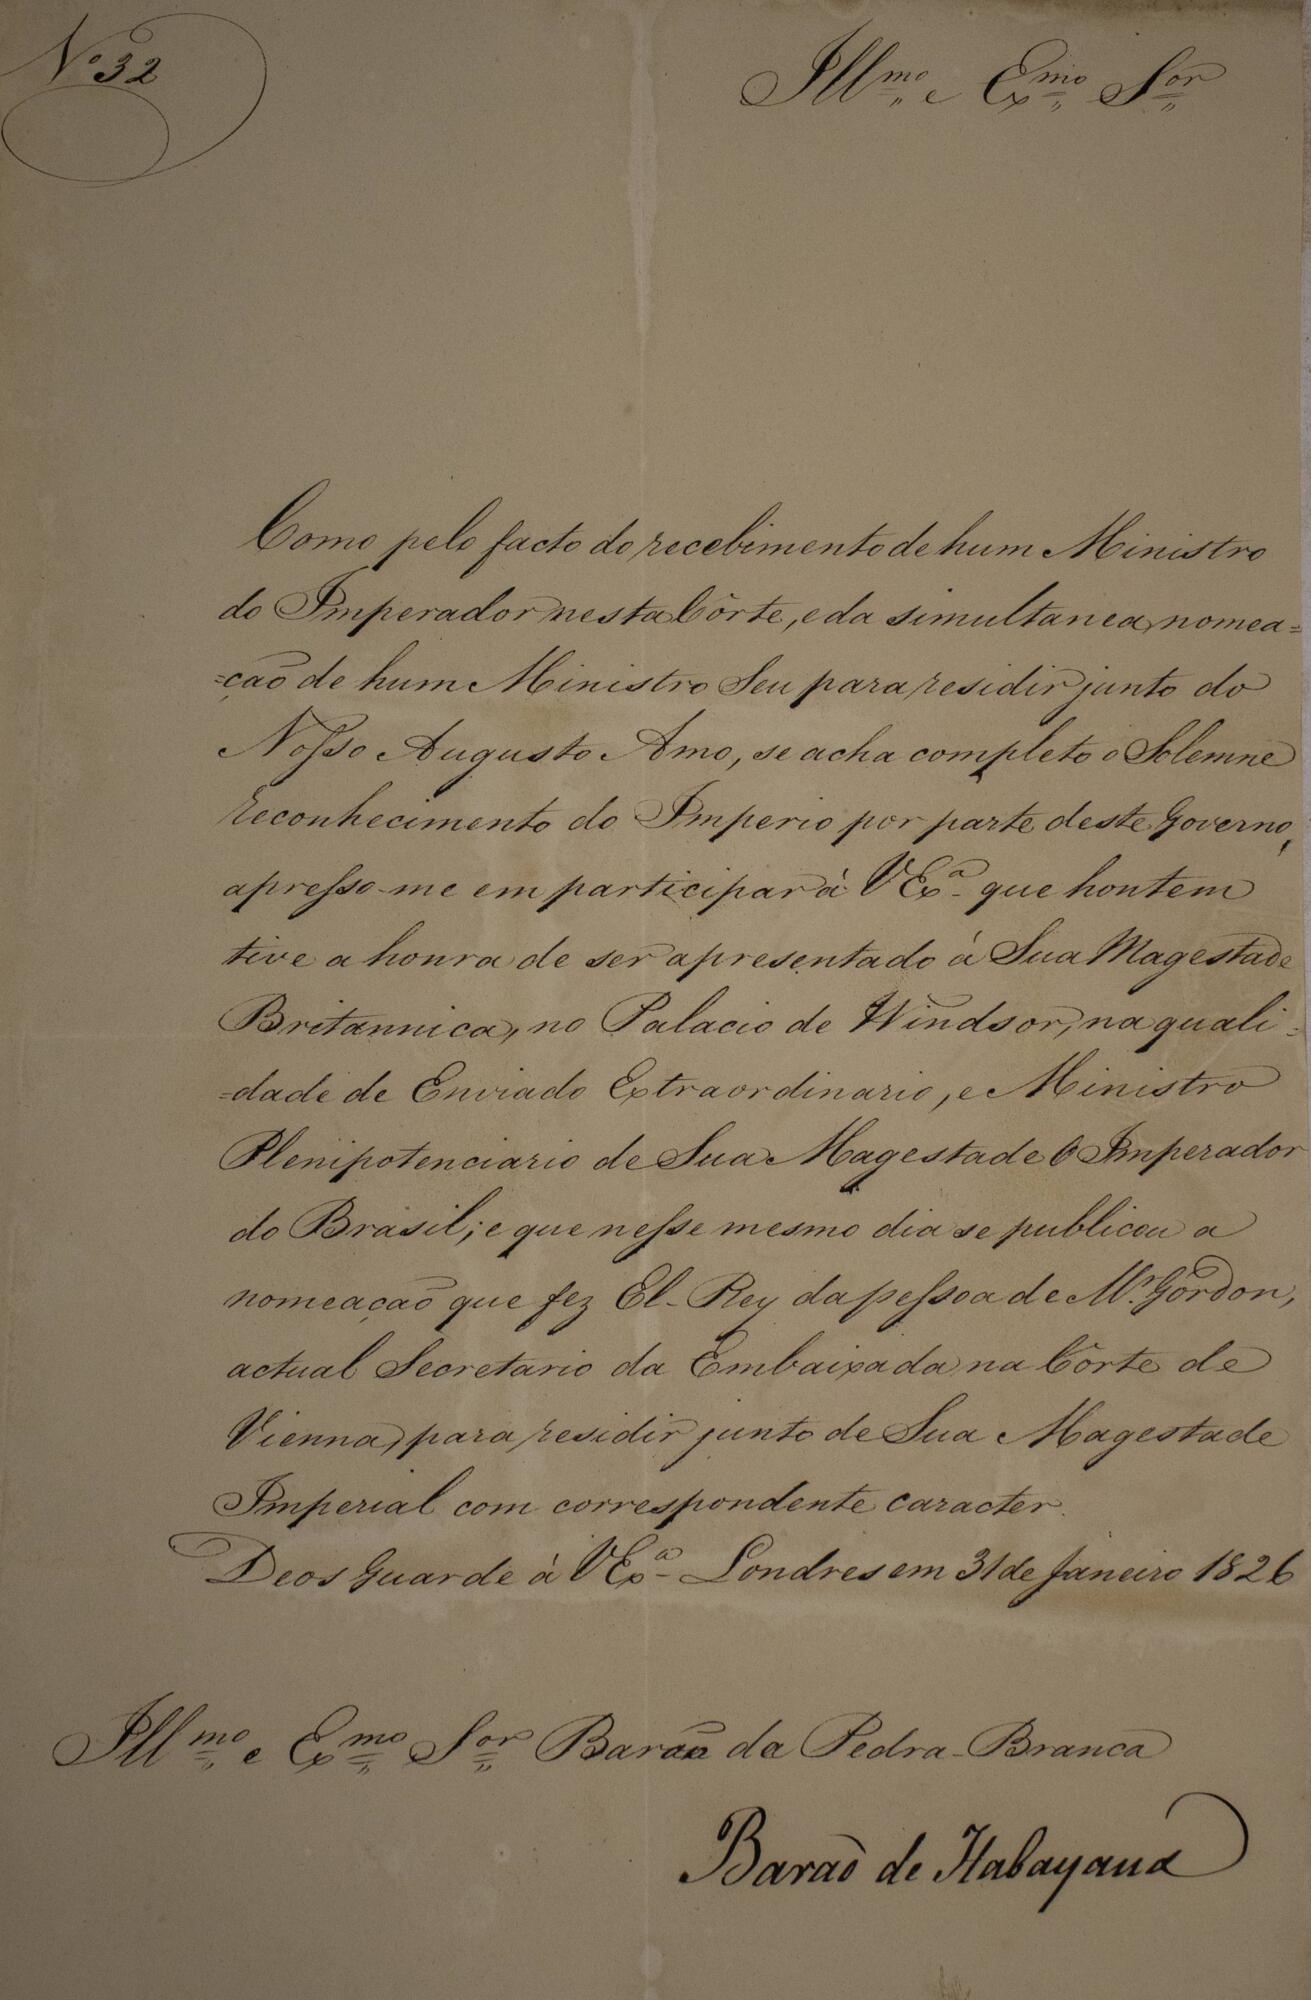 Nº 32
Illmo e Exmo Sor
Como pelo facto do recebimento de hum Ministro
do Imperador nesta Côrte, e da simultanea nomea=
=ção de hum Ministro Seu para residir junto do
Nosso Augusto Amo, se acha completo o Solemne
reconhecimento do Imperio por parte deste Governo,
apresso-me em participar á VExª que hontem
tive a honra de ser apresentado á Sua Magestade
Britannica, no Palacio de Windsor, na quali=
=dade de Enviado Extraordinario, e Ministro
Plenipotenciario de Sua Magestade O Imperador
do Brasil; e que nesse mesmo dia se publicou a
nomeação que fez El-Rey da pessoa de Mr. Gordon,
actual Secretario da Embaixada na Côrte de
Vienna, para residir junto de Sua Magestade
Imperial com correspondente caracter.
Deos Guarde á VExª Londres em 31 de Janeiro 1826
Illmo e Exmo Sor Barão da Pedra-Branca
Barão de Itabayana